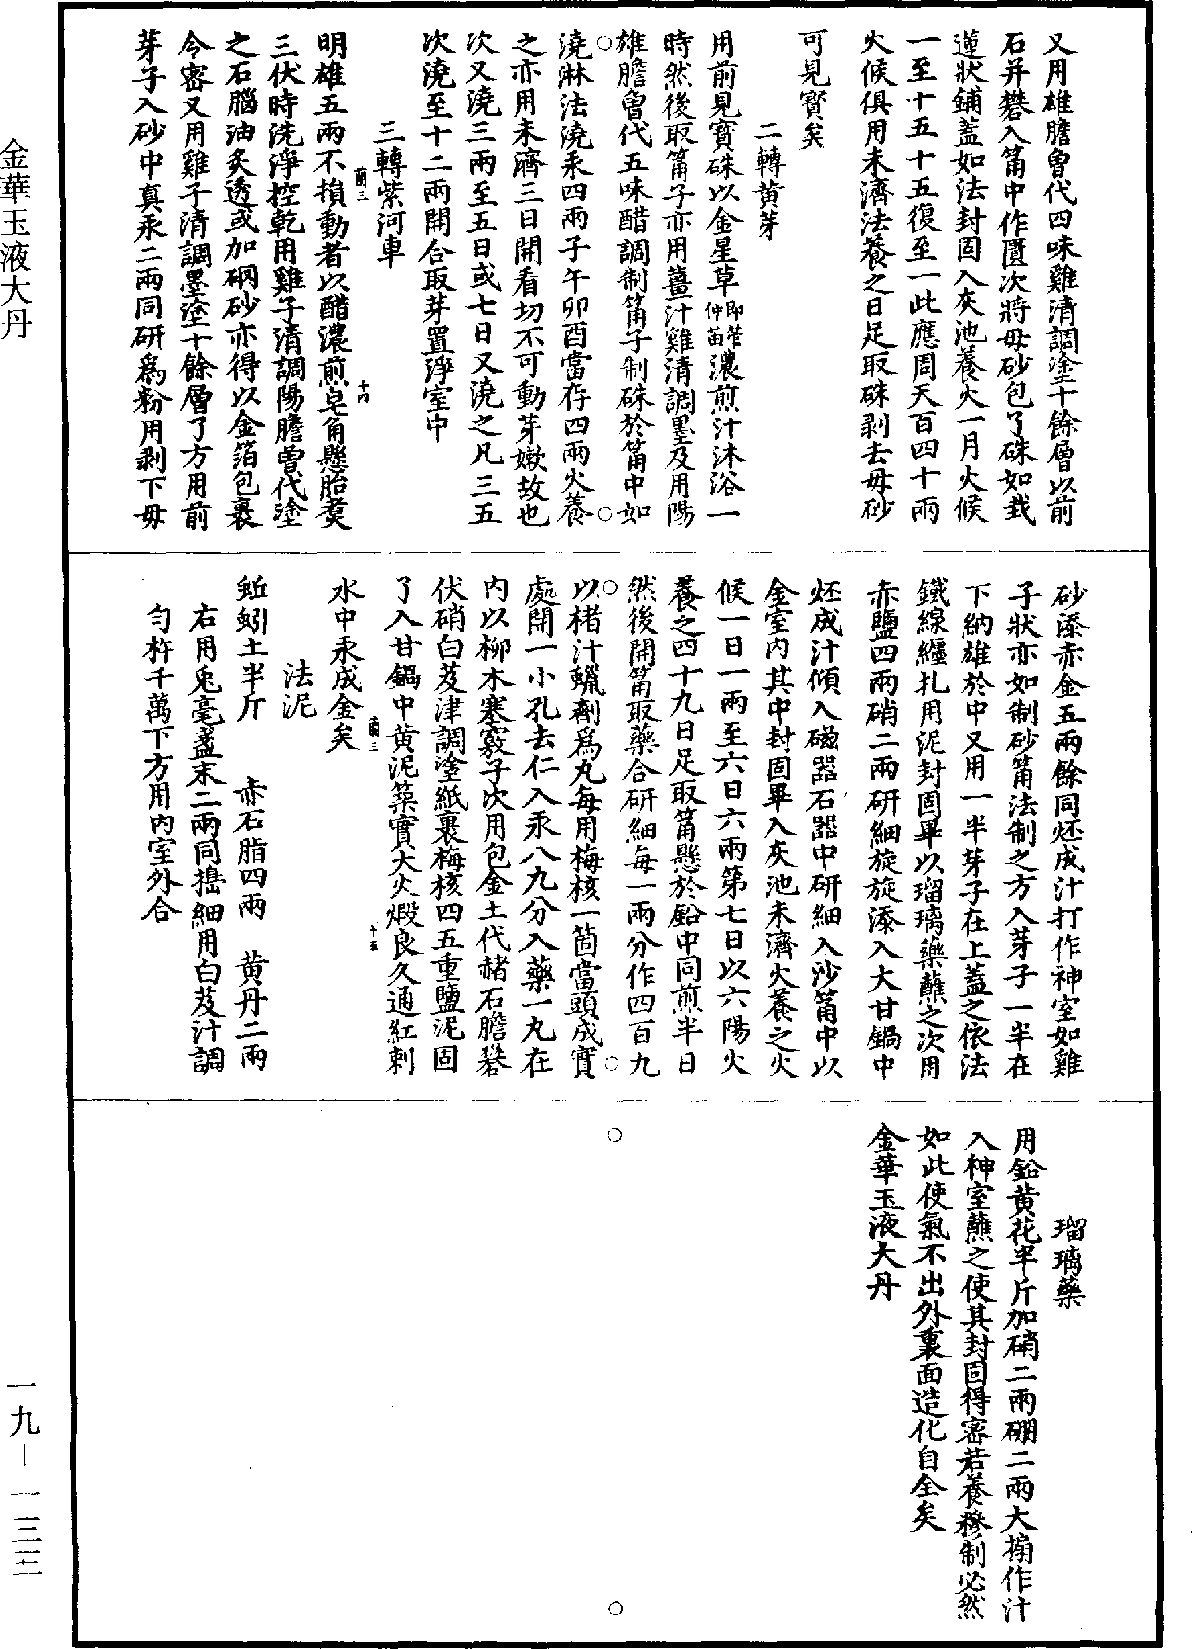 又用雄膽曾代四味雞清調塗十餘層以前
石并礬入筩中作匱次將母砂包了硃如栽
蓮狀鋪蓋如法封固入灰池養火一月火候
一至十五十五復至一此應周天百四十兩
火候俱用未濟法養之日足取硃剥去母砂
可見寳矣
二轉黄芽
用前見寳硃以金星草即管仲苗濃煎汁沐浴一
時然後取筩子亦用薑汁雞清調墨及用陽
雄膽曾代五味醋調制筩子制硃於筩中如
澆淋法澆汞四兩子午卯酉當存四兩火養
之亦用未濟三日開看切不可動芽嫩故也
次又澆三兩至五日或七日又澆之凡三五
次澆至十二兩開合取芽置淨室中
三轉紫河車
明雄五兩不損動者以醋濃煎皂角懸胎煑
三伏時洗淨控乾用雞子清調陽膽曾代塗
之石腦油炙透或加硇砂亦得以金箔包裹
令密又用雞子清調墨塗十餘層了方用前
芽子入砂中真汞二兩同研爲粉用剥下母
蘭三
十四
砂漆赤金五兩餘同炢成汁打作神室如雞
子狀亦如制砂筩法制之方入芽子一半在
下納雄於中又用一半芽子在上蓋之依法
鐵線纏扎用泥封固畢以瑠璃藥蘸之次用
赤鹽四兩硝二兩研細旋旋漆入大甘鍋中
炢成汁傾入磁器石器中研細入沙筩中以
金室内其中封固畢入灰池未濟火養之火
候一日一兩至六日六兩第七日以六陽火
養之四十九日足取筩懸於鉛中同煎半日
然後開筩取藥合研細每一兩分作四百九
以楮汁蠟劑爲丸每用梅核一箇當頭成實
處開一小孔去仁入汞八九分入藥一丸在
内以柳木塞竅子次用包金土代赭石膽礬
伏硝白芨津調塗紙裹梅核四五重鹽泥固
了入甘鍋中黄泥築實大火煅良久通紅剌
水中汞成金矣
蘭三
十五
法泥
蚯蚓土半斤　赤石脂四兩　黄丹二兩
右用兎毫盞末二兩同搗細用白芨汁調
勻杵千萬下方用内室外合
瑠璃藥
用鉛黄花半斤加硝二兩硼二兩大搧作汁
入神室蘸之使其封固得密若養穇制必然
如此使氣不出外裏面造化自全矣
金華玉液大丹
金華玉液大丹
一九—一三三